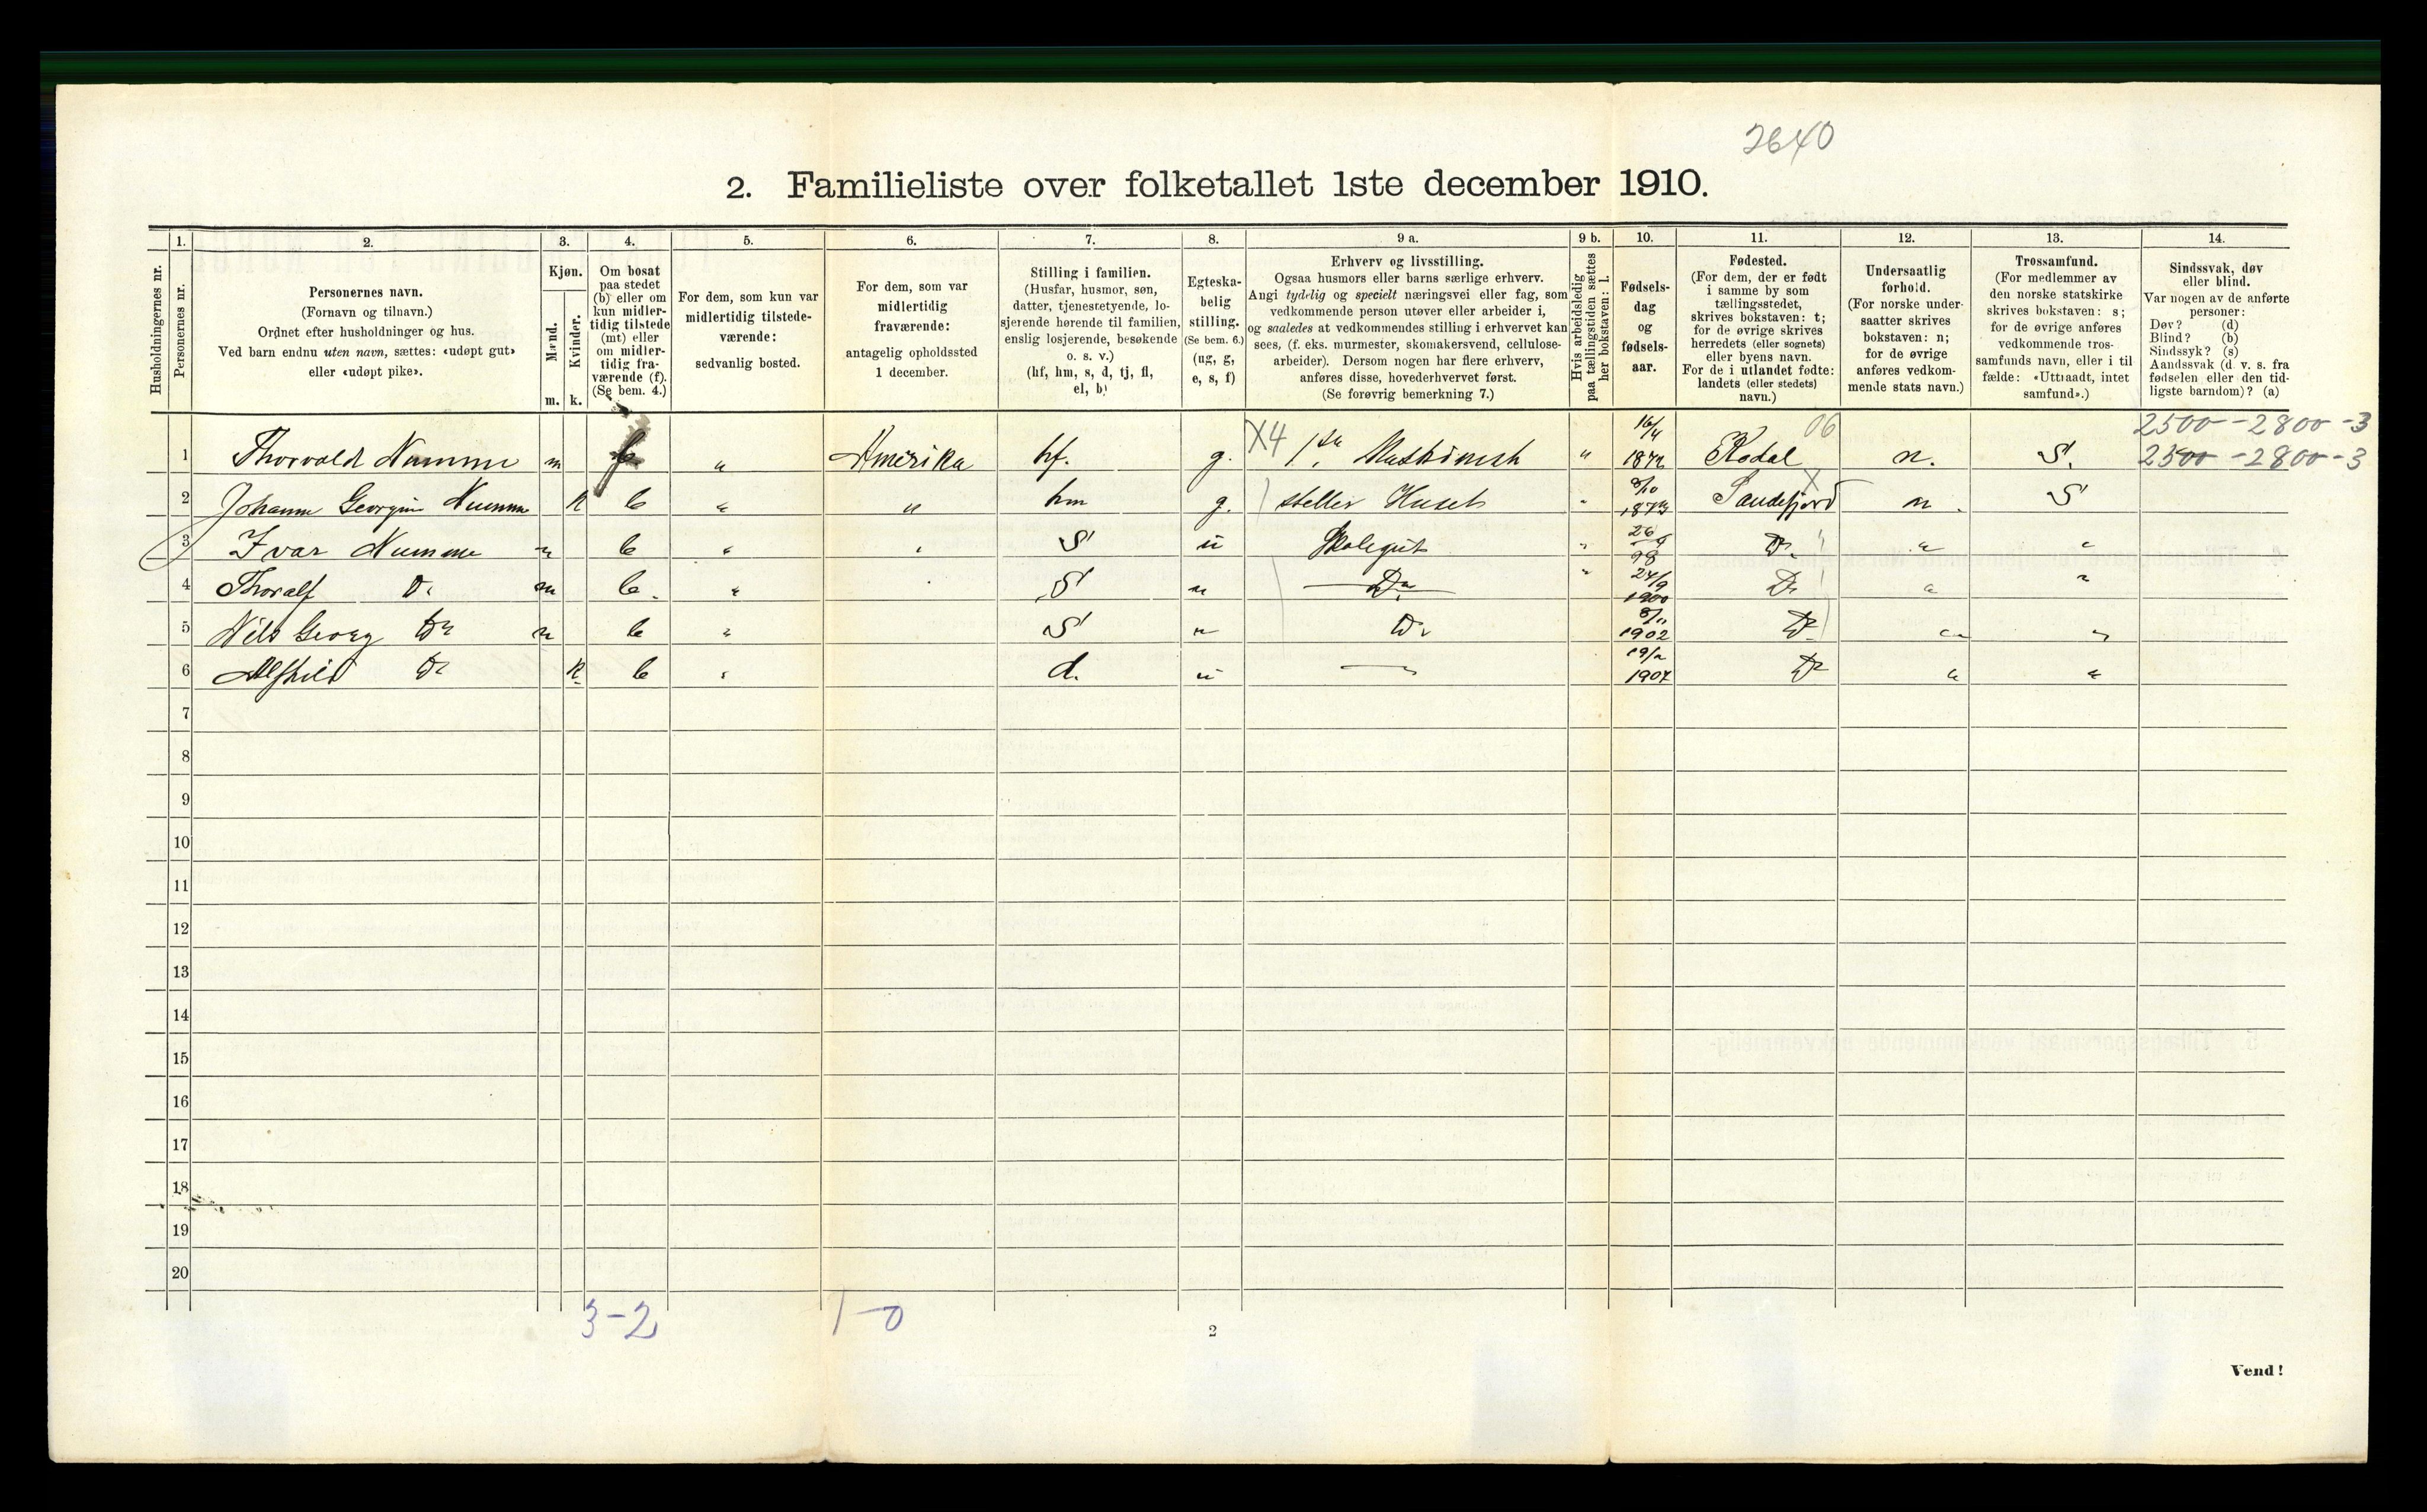 2640
2. Familieliste over folketallet 1ste december 1910.
1. 2. 3. 4. 5. 6. 7. 8. 9 a. 9 b. 10. 11. 12. 13. 14.
Husholdningernes nr.
Personernes nr.
Personernes navn.
(Fornavn og tilnavn.)
Ordnet efter husholdninger og hus.
Ved barn endnu uten navn, sættes: «udøpt gut»
eller «udøpt pike».
Kjøn.
Mænd.
Kvinder.
m. k.
Om bosat
paa stedet
(b) eller om
kun midler-
tidig tilstede
(mt) eller
om midler-
tidig fra-
værende (f).
(Se bem. 4.)
For dem, som kun var
midlertidig tilstede-
værende:
sedvanlig bosted.
For dem, som var
midlertidig
fraværende:
antagelig opholdssted
1 december.
Stilling i familien.
(Husfar, husmor, søn,
datter, tjenestetyende, lo-
sjerende hørende til familien,
enslig losjerende, besøkende
o. s. v.)
(hf, hm, s, d, tj, fl,
el, b)
Egteska-
belig
stilling.
(Se bem. 6.)
(ug, g,
e, s, f)
Erhverv og livsstilling.
Ogsaa husmors eller barns særlige erhverv.
Angi tydelig og specielt næringsvei eller fag, som
vedkommende person utøver eller arbeider i,
og saaledes at vedkommendes stilling i erhvervet kan
sees, (f. eks. murmester, skomakersvend, cellulose-
arbeider). Dersom nogen har flere erhverv,
anføres disse, hovederhvervet først.
(Se forøvrig bemerkning 7.)
Hvis arbeidsledig
paa tællingstiden sættes
her bokstaven: l.
Fødsels-
dag
og
fødsels-
aar.
Fødested.
(For dem, der er født
i samme by som
tællingsstedet,
skrives bokstaven: t;
for de øvrige skrives
herredets (eller sognets)
eller byens navn.
For de i utlandet fødte:
landets (eller stedets)
navn.)
Undersaatlig
forhold.
(For norske under-
saatter skrives
bokstaven: n;
for de øvrige
anføres vedkom-
mende stats navn.)
Trossamfund.
(For medlemmer av
den norske statskirke
skrives bokstaven: s;
for de øvrige anføres
vedkommende tros-
samfunds navn, eller i til
fælde: «Uttraadt, intet
samfund».)
Sindssvak, døv
eller blind.
Var nogen av de anførte
personer:
Døv? (d)
Blind? (b)
Sindssyk? (s)
Aandssvak (d. v. s. fra
fødselen eller den tid-
ligste barndom)? (a)
2500 - 2800 - 3
1 Thorvald Numme m f. " Amerika hf. g. X4 1ste Maskinist " 16/4 1872 Kodal 06 n. S. 2500 - 2800 - 3
2 Johanne Georgine Numme k b " " hm g. steller Huset " 8/10 1873 Sandefjord X n. S
3 Ivar Numme m b " " S u Skolegut " 26/9 98 Do " "
4 Thoralf Do m b. " S u Do " 24/9 1900 Do " "
5 Nils Georg Do m b " S u Do 8/11 1902 Do " "
6 Alfhild Do k b " d. u — 19/2 1907 Do " "
7
8
9
10
11
12
13
14
15
16
17
18
19
20
3-2 1-0
2
Vend!